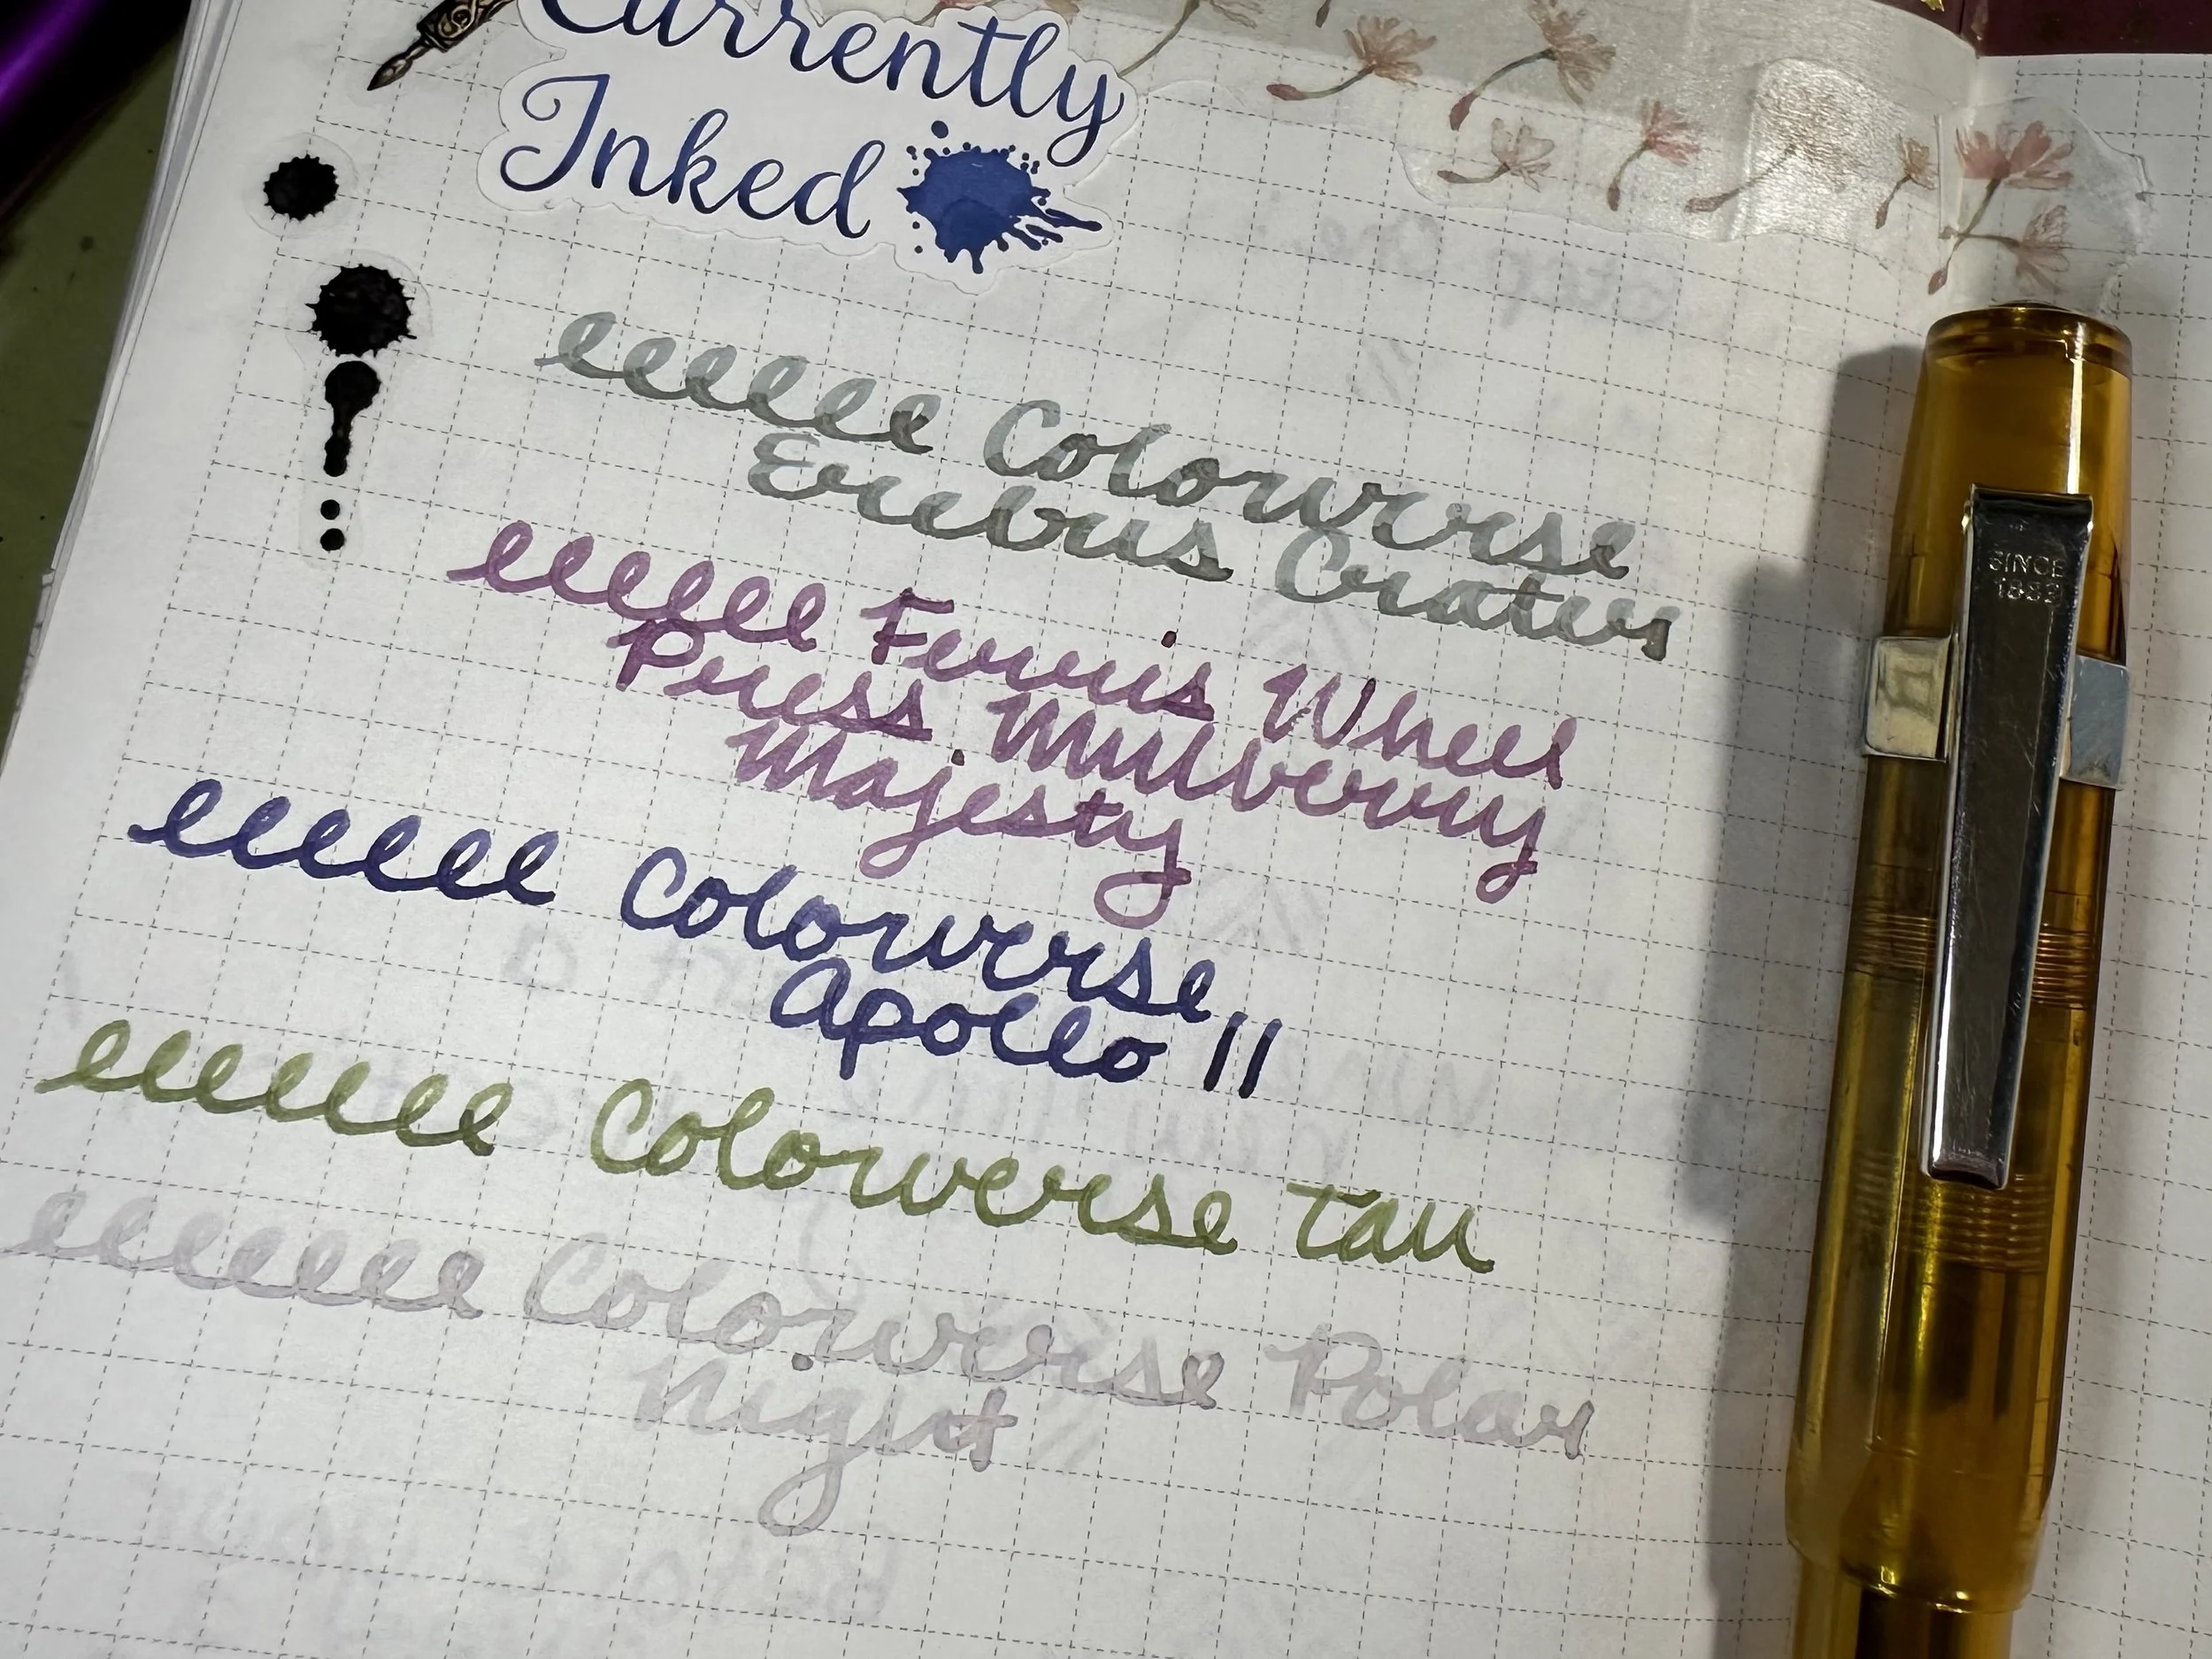 Currently
Inked
eeeeee Colorverse
Erebus Crater
eeeeee Ferris Wheel
Press Mulberry
Majesty
eeeeee Colorverse
Apollo 11
eeeeee Colorverse tau
eeeeeee Colorverse Polar
Night
SINCE
1883